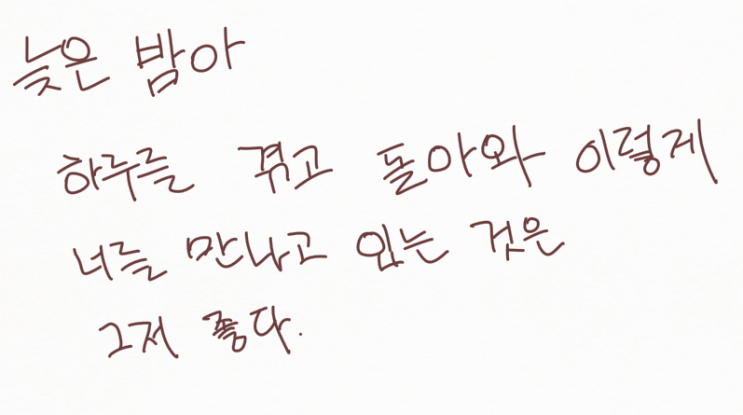 늦은 밤아
하루를 겪고 돌아와 이렇게
너를 만나고 있는 것은
그저 좋다.